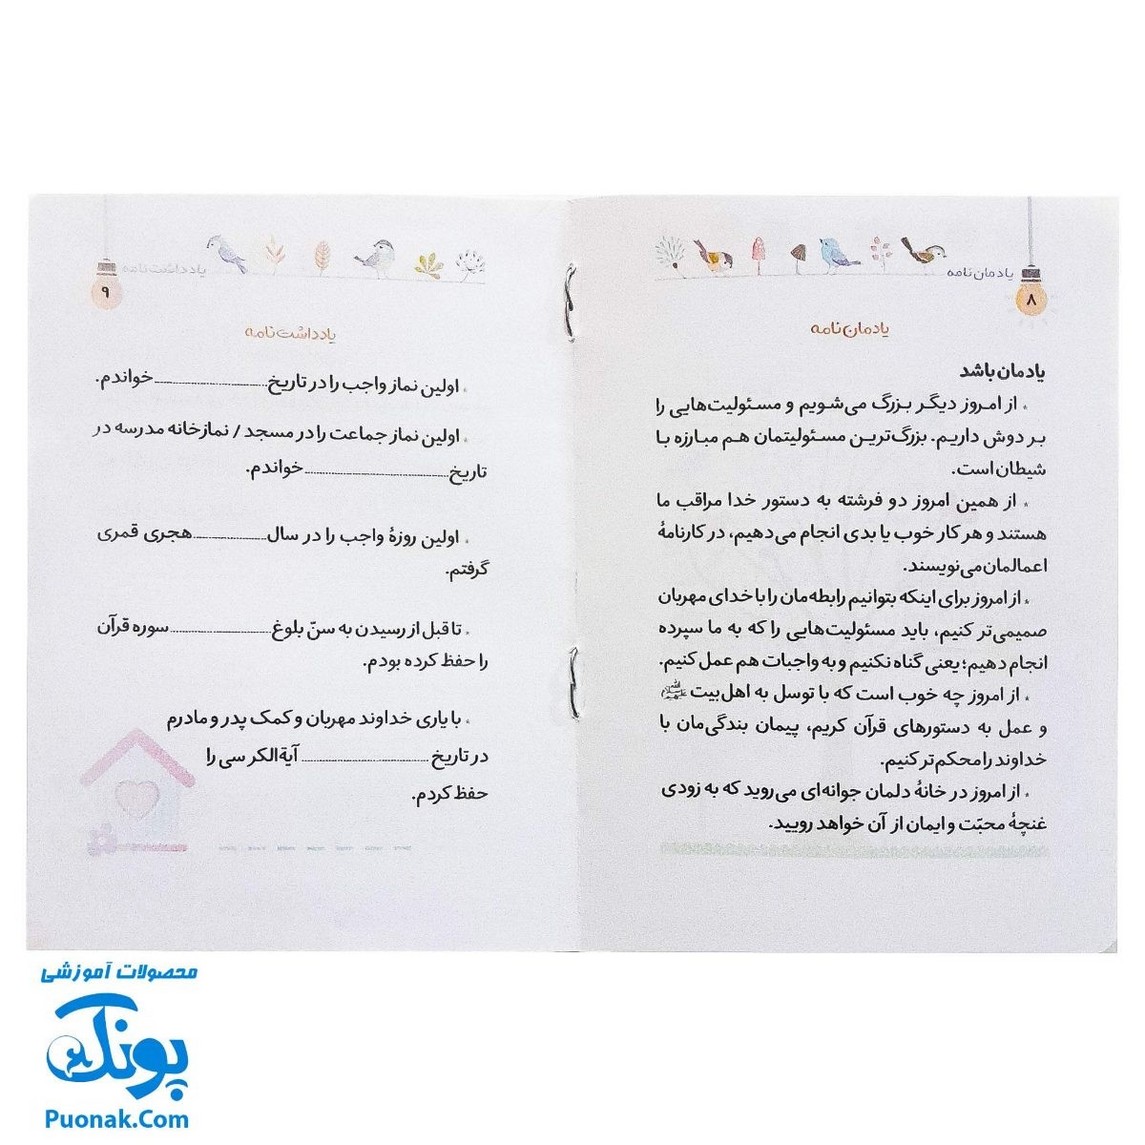 یادمان‌نامه
۸
یادمان‌نامه
یادمان باشد
از امروز دیگر بزرگ می‌شویم و مسئولیت‌هایی را
بر دوش داریم. بزرگ‌ترین مسئولیتمان هم مبارزه با
شیطان است.
از همین امروز دو فرشته به دستور خدا مراقب ما
هستند و هر کار خوب یا بدی انجام می‌دهیم، در کارنامهٔ
اعمالمان می‌نویسند.
از امروز برای اینکه بتوانیم رابطه‌مان را با خدای مهربان
صمیمی‌تر کنیم، باید مسئولیت‌هایی را که به ما سپرده
انجام دهیم؛ یعنی گناه نکنیم و به واجبات هم عمل کنیم.
از امروز چه خوب است که با توسل به اهل‌بیت علیهم‌السلام
و عمل به دستورهای قرآن کریم، پیمان بندگی‌مان با
خداوند را محکم‌تر کنیم.
از امروز در خانهٔ دلمان جوانه‌ای می‌روید که به زودی
غنچهٔ محبّت و ایمان از آن خواهد رویید.
یادداشت‌نامه
۹
یادداشت‌نامه
اولین نماز واجب را در تاریخ............خواندم.
اولین نماز جماعت را در مسجد / نمازخانه مدرسه در
تاریخ............خواندم.
اولین روزهٔ واجب را در سال............هجری قمری
گرفتم.
تا قبل از رسیدن به سنّ بلوغ............سوره قرآن
را حفظ کرده بودم.
با یاری خداوند مهربان و کمک پدر و مادرم
در تاریخ............آیةالکرسی را
حفظ کردم.
محصولات آموزشی
پونک
Puonak.Com